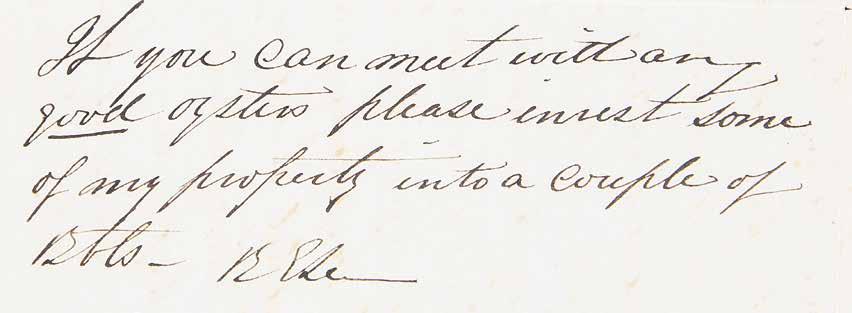 If you can meet with any
good oysters please invest some
of my property into a couple of
Bbls –